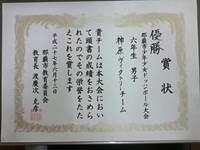 優勝賞状
那覇市少年少女ドッジボール大会
六年生 男子
神原ヴィクトリーチーム
貴チームは本大会におい
て頭書の成績をおさめら
れたのでその栄誉をたた
えこれを賞します
平成二十七年六月十三日
那覇市教育委員会
教育長 渡慶次 克彦